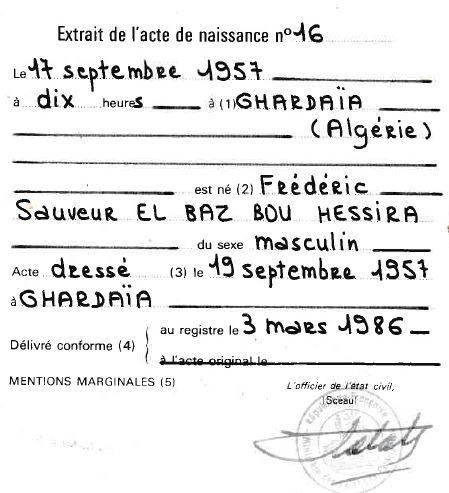 Extrait de l'acte de naissance nº 16
Le 17 septembre 1957
à dix heures à (1) GHARDAÏA
(Algérie)
est né (2) Frédéric
Sauveur EL BAZ BOU HESSIRA
du sexe masculin
Acte dressé (3) le 19 septembre 1957
à GHARDAÏA
au registre le 3 mars 1986
Délivré conforme (4)
à l'acte original le
MENTIONS MARGINALES (5)
L'officier de l'état civil,
(Sceau)